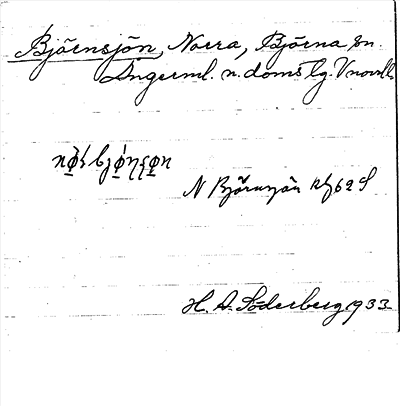 Björnsjön, Norra, Björna sn.
Ångerml. n. doms lg. Vnorrl.
N Björnsjön 62 S
H. A. Söderberg 1933